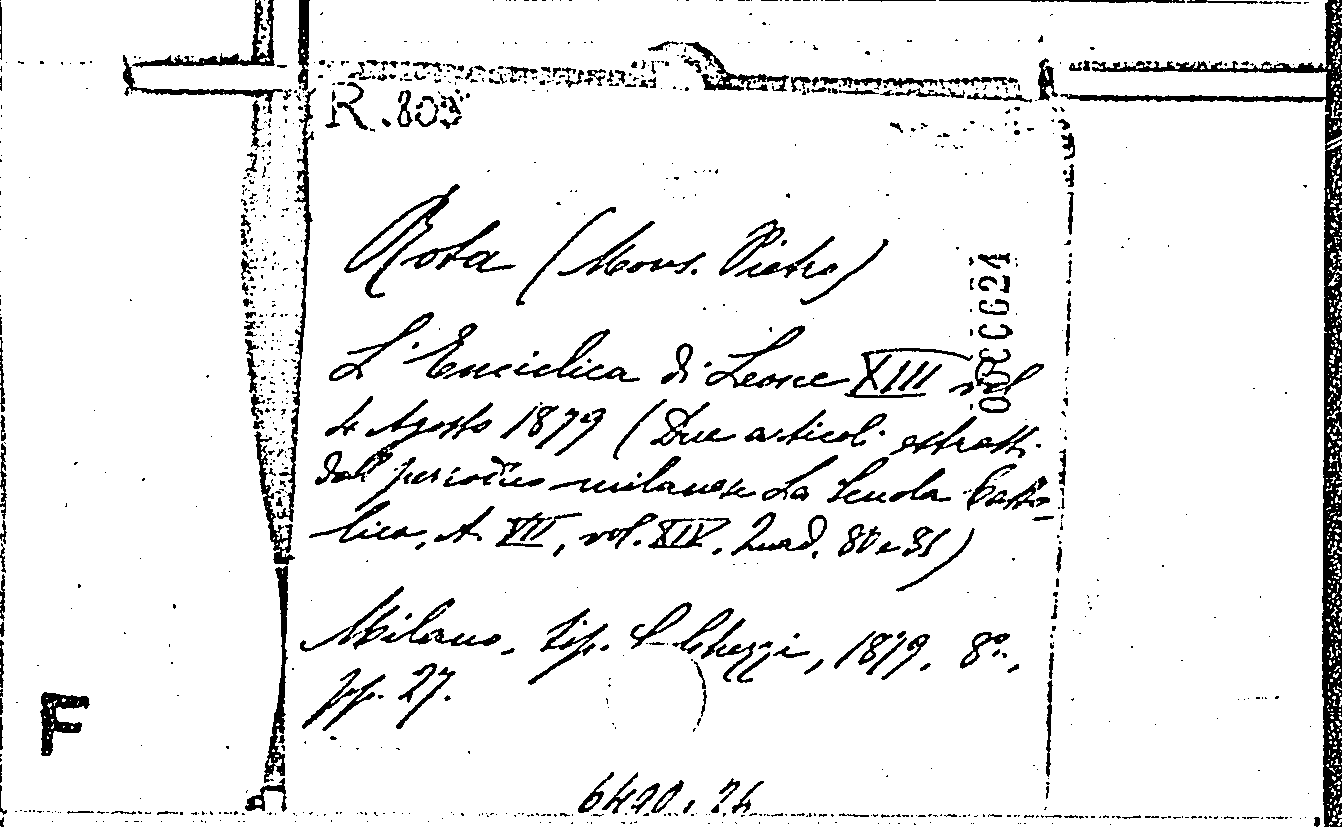 R.803
Rota (Mons. Pietro)
L'Enciclica di Leone XIII del
4 Agosto 1879 (Due articoli estratti
dal periodico milanese La Scuola Catto-
lica, A. VII, vol. XIV. Quad. 80 e 81)
Milano, tip. Ghezzi, 1879. 8º.,
pp. 27.
6420.24
F